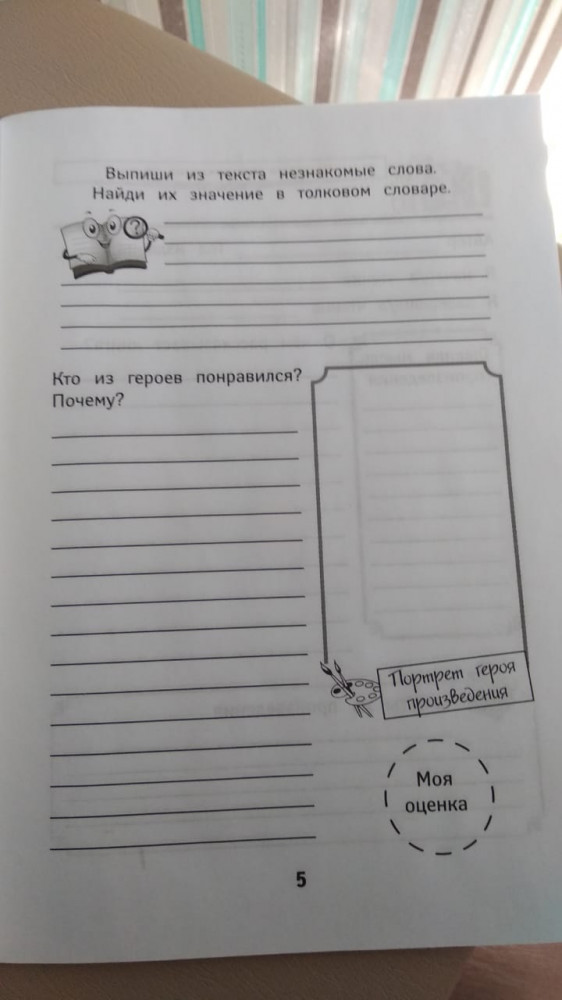 Выпиши из текста незнакомые слова.
Найди их значение в толковом словаре.
?
Кто из героев понравился?
Почему?
Портрет героя
произведения
Моя
оценка
5